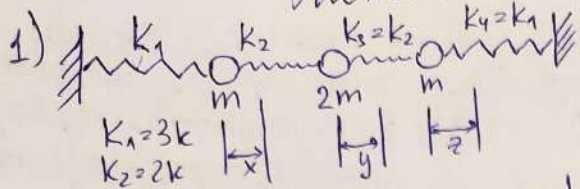 1) K₁ K₂ K₃=K₂ K₄=K₁
m 2m m
K₁=3k
K₂=2k x y z